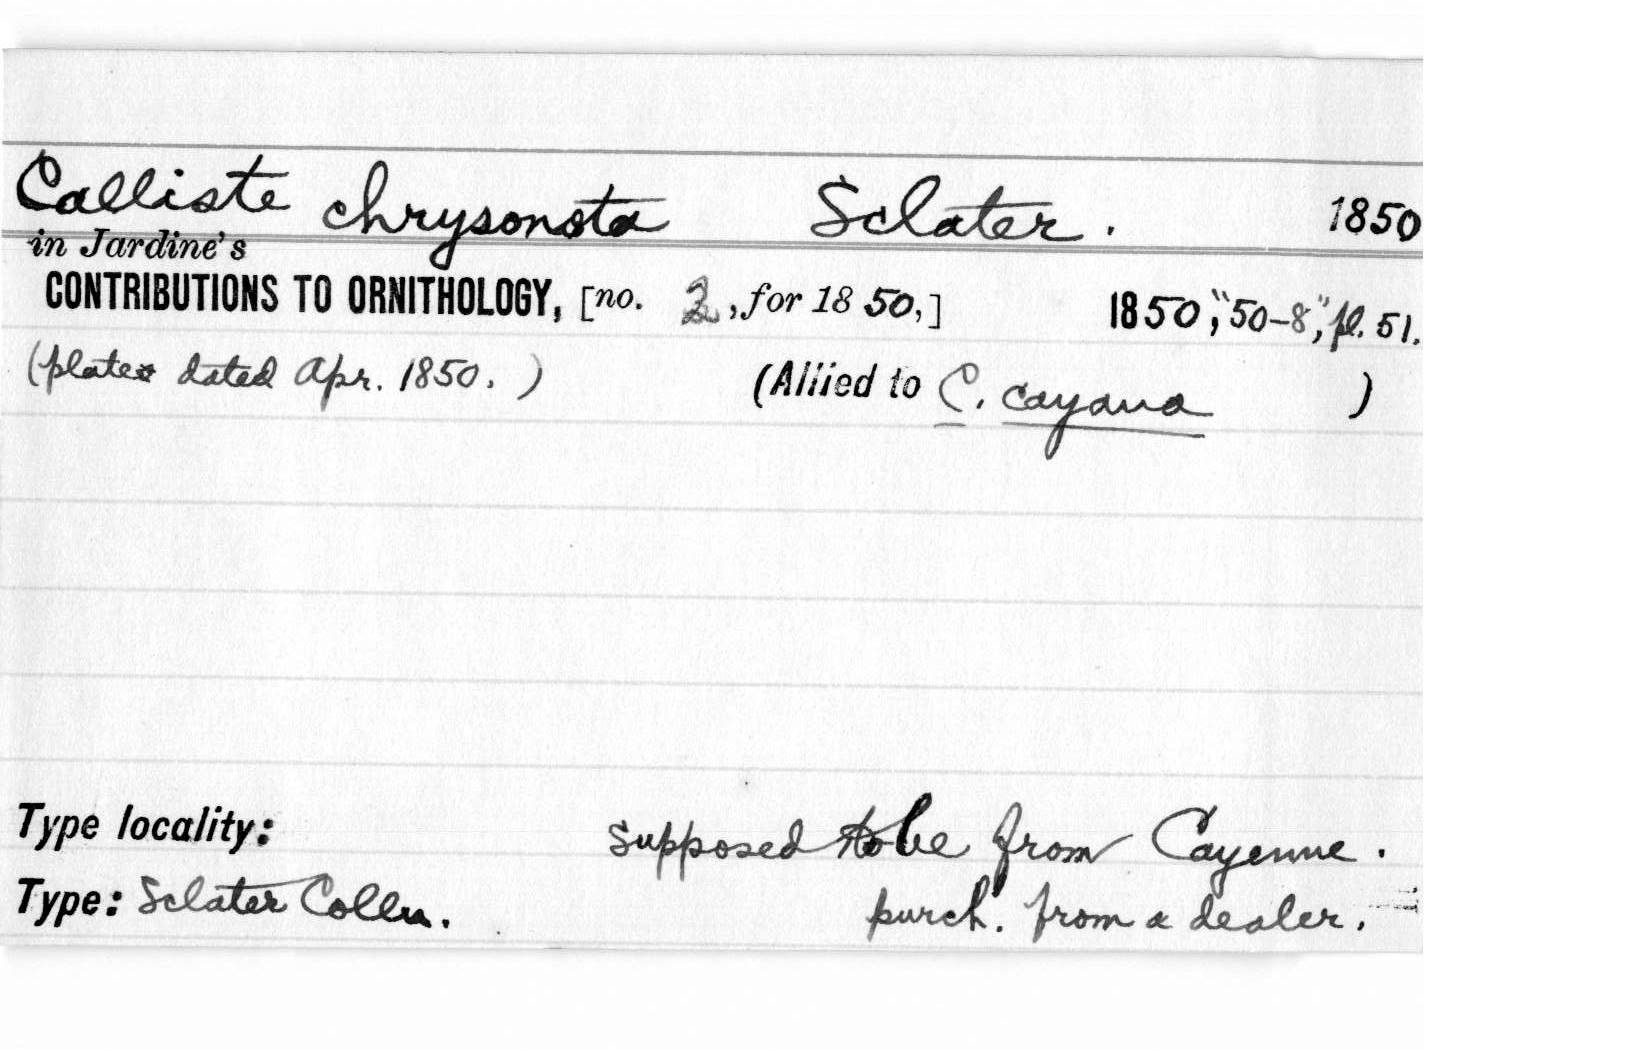 Calliste chrysonota Sclater. 1850
in Jardine's
CONTRIBUTIONS TO ORNITHOLOGY, [no. 2, for 1850,] 1850, "50-8", pl. 51.
(plate dated Apr. 1850.) (Allied to C. cayana )
Type locality: supposed to be from Cayenne.
Type: Sclater Colln. purch. from a dealer.